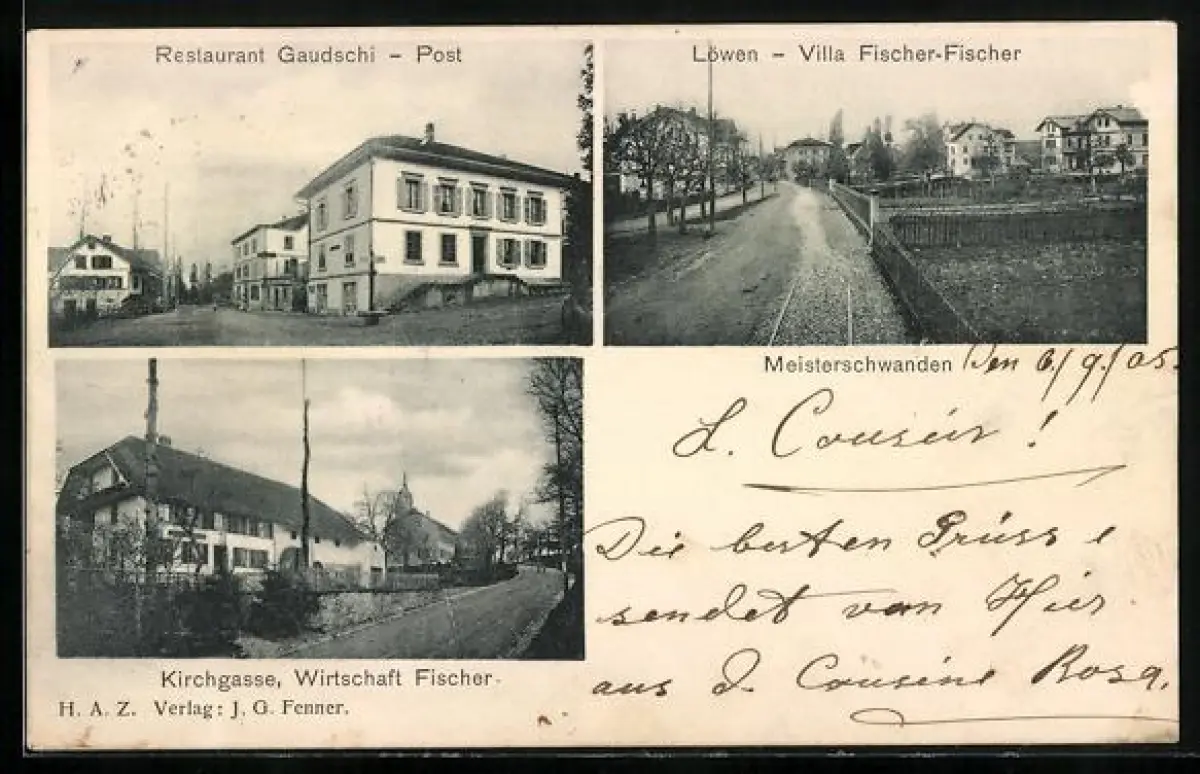 Restaurant Gaudschi – Post
Löwen – Villa Fischer-Fischer
Meisterschwanden Den 6./9./05.
L. Cousin!
Die besten Grüsse
sendet von Hier
aus d. Cousine Rosa.
Kirchgasse, Wirtschaft Fischer.
H. A. Z. Verlag: J. G. Fenner.